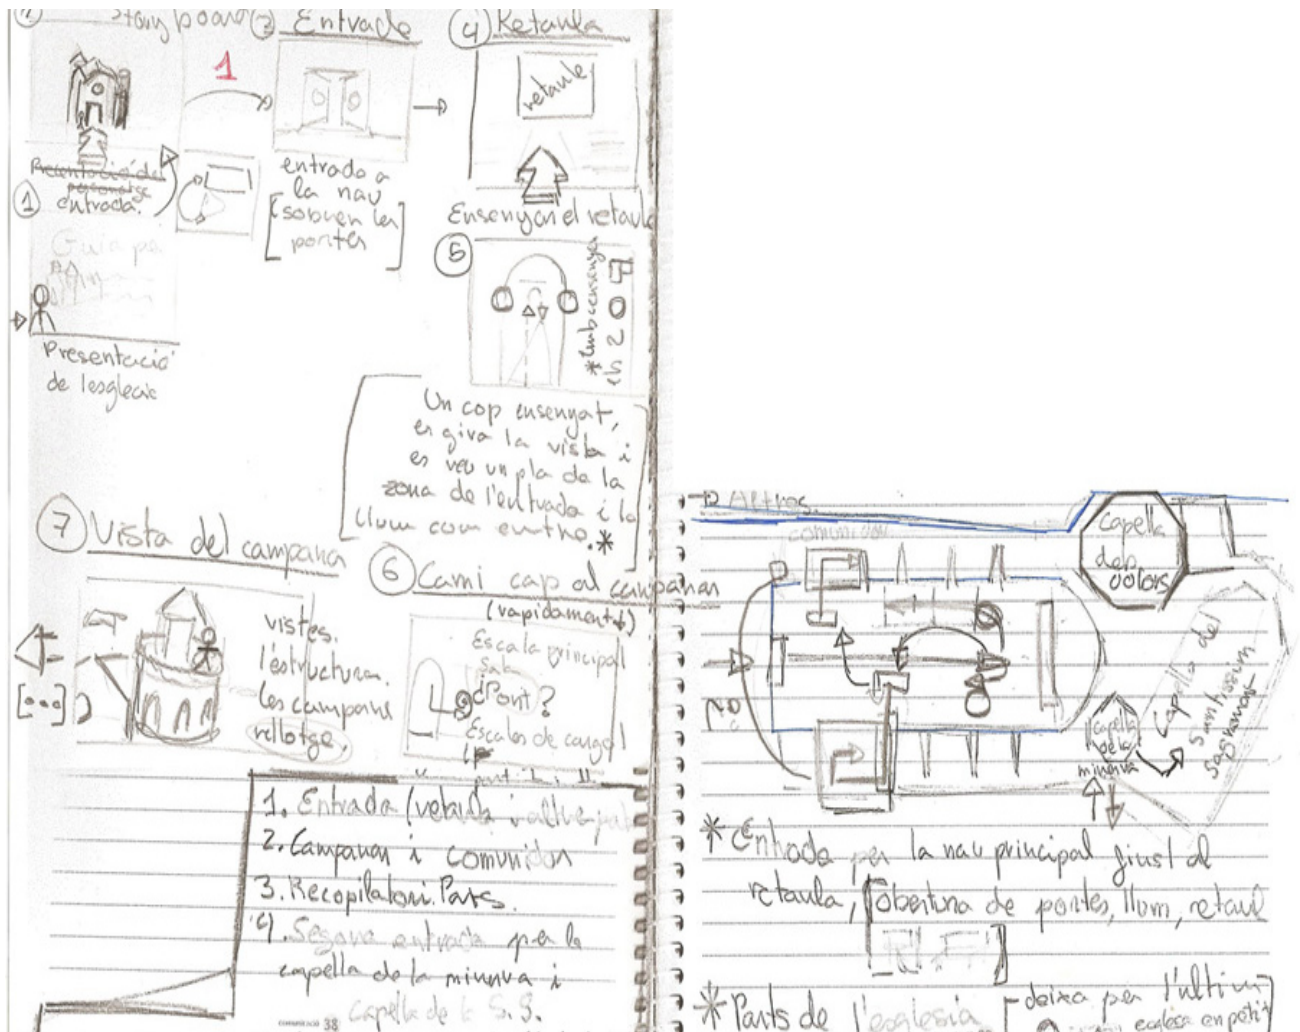 Storyboard
1
③ Entrada
④ Retaula
retaule
Presentació del
personatge
entrada.
entrada a
la nau
[s'obren les
portes]
Ensenyan el retaule
①
Guia pe
Presentació
de lesglesia
⑤
Un cop ensenyat,
es gira la vista i
es veu un pla de la
zona de l'entrada i la
llum com entra.*
⑦ Vista del campana
vistes.
l'estructura.
les campane
rellotge.
[...]
⑥ Camí cap al campanar
(rapidament)
Escala principal
Sala
¿Pont?
Escales de cargol
1. Entrada (retaula i altre
2. Campanar i comunidor
3. Recopilatori. Parts.
4. Segona entrada per la
capella de la minerva i
capella de la S.S.
38
→ Altres.
comunidor
Capella
dels
dolors
Capella del
Santissim
Sagrament
capella
de la
minerva
* Entrada per la nau principal fins al
retaula, obertura de portes, llum, retaul
* Parts de l'esglesia
deixa per l'ultim